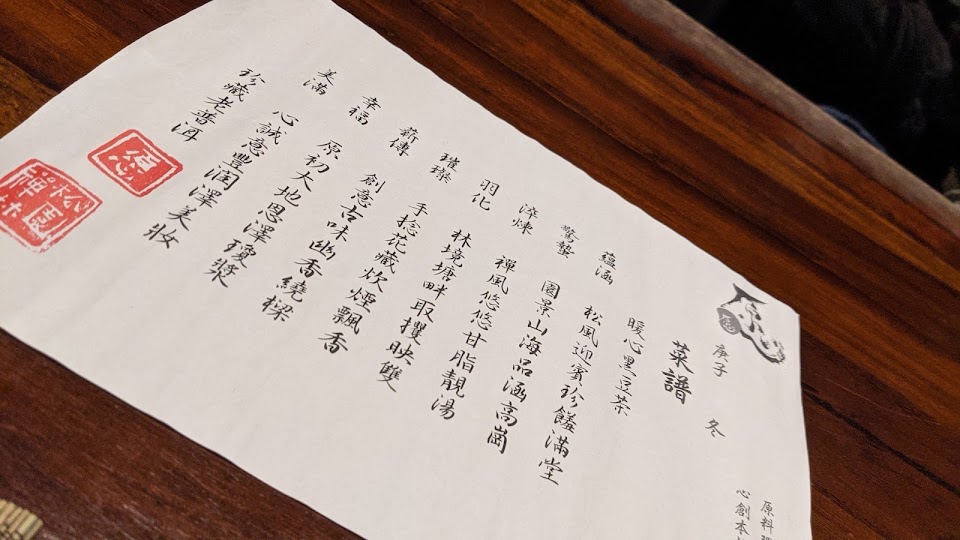 原料
心創本
庚子 冬
菜譜
暖心黑豆茶
蘊涵 松風迎賓珍饈滿堂
驚蟄 園景山海品涵高崗
淬煉 禪風悠悠甘脂靚湯
羽化 林境塘畔取攫映雙
璀璨 手捻花藏炊煙飄香
薪傳 創意古味幽香繞樑
幸福 原初大地恩澤瓊漿
美滿 心誠意豐潤澤美妝
珍藏老普洱
松園禪林